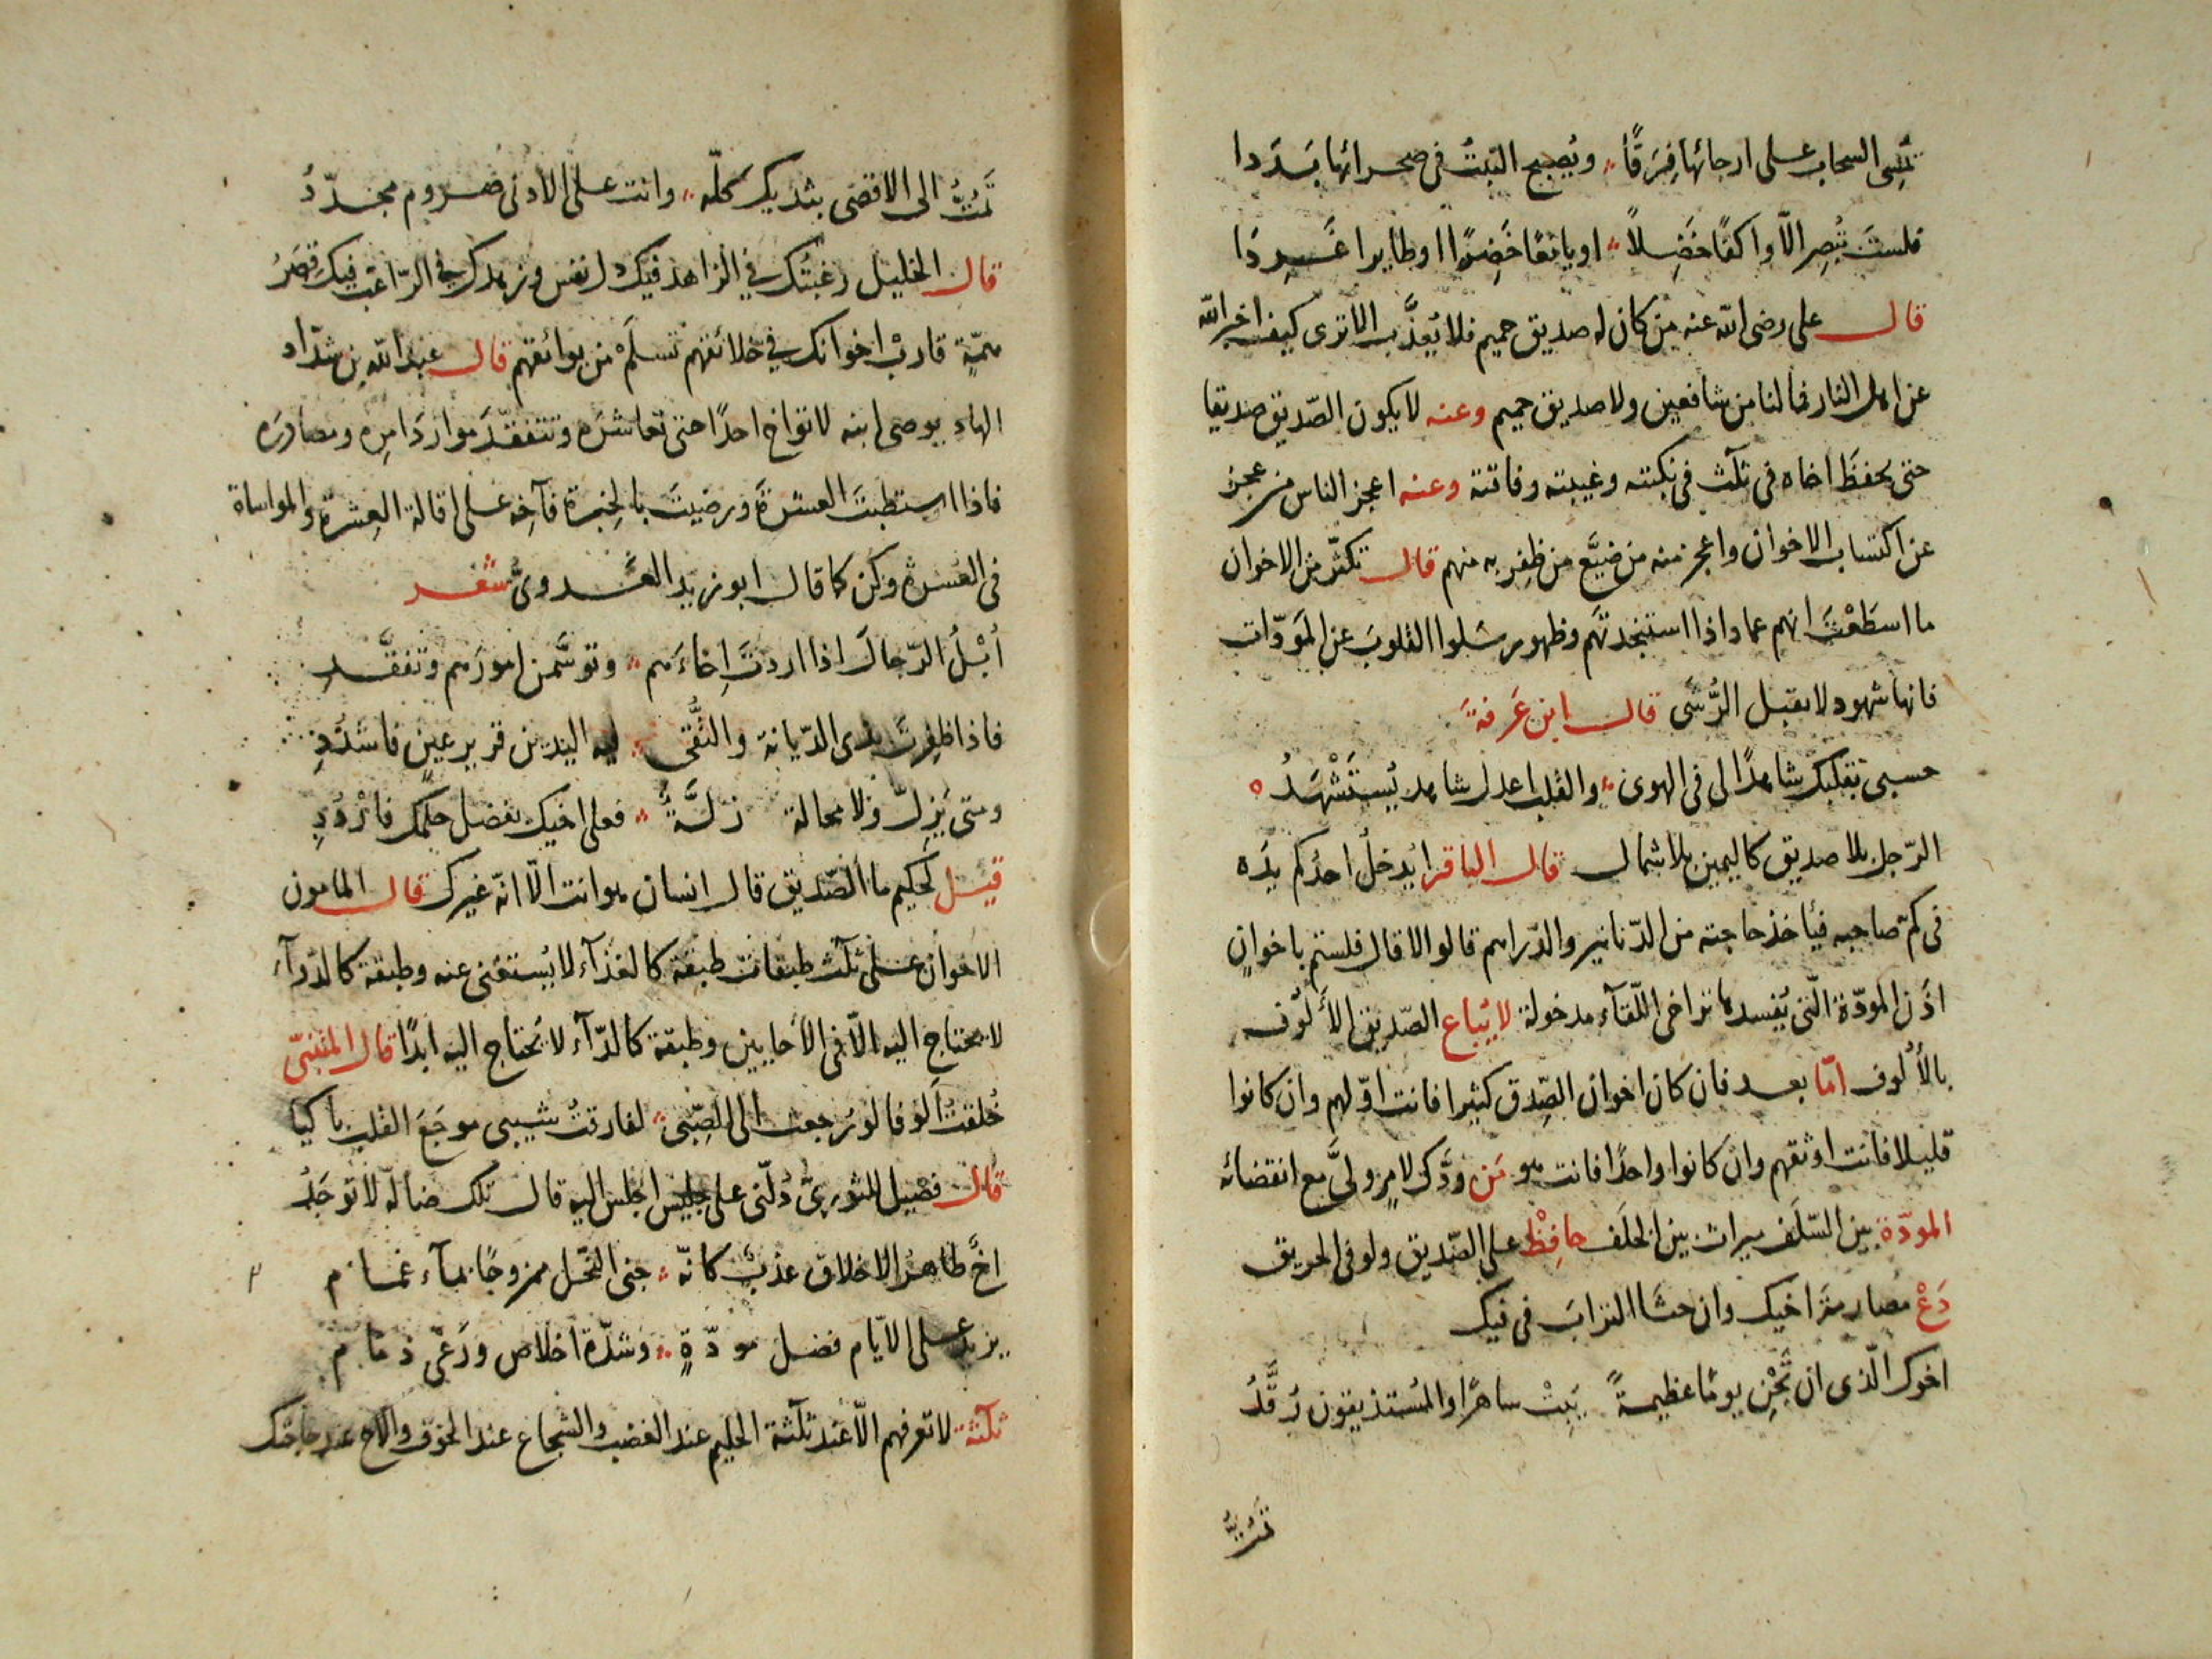 تُمسِى السحاب على ارجائها فِرَقًا ؞ ويُصبح النبتُ فى صحرائها بَدَدا
فلستَ تُبصِر الّا واكفًا خَضِلاً ؞ او يانعًا خَضِرًا او طايرا غَرِدَا
قال على رضى الله عنه من كان له صديق حميم فلا يُعذَّب الا ترى كيف اخبر الله
عن اهل النار فما لنا من شافعين ولا صديق حميم وعنه لا يكون الصّديق صديقا
حتى يحفظَ اخاه فى ثلث فى نكبته وغيبته وفاته وعنه اعجز الناس من عجز
عن اكتساب الاخوان واعجز منه من ضيَّع من ظفِر به منهم قال تكثّر من الاخوان
ما اسطَعْتَ انهم عماد اذا استنجدتَهم وظهور سلوا القلوبَ عن المَودّات
فانها شهود لا تقبل الرُّشَى قال ابن عَرفةَ
حسبى بقلبك شاهدًا لى فى الهوى ؞ والقلب اعدل شاهد يُستَشْهَدُ
الرّجل بلا صديق كاليمين بلا شمال قال الباقر ايُدخلُ احدُكم يدَه
فى كمّ صاحبه فيأخذ حاجته من الدّنانير والدّراهم قالوا لا قال فلستم باخوانٍ
اذًن المودّة الّتى يُفسدها تراخى اللّقآء مدخولة لا يُباع الصّديق الأَلُوف
بالأُلوف امّا بعد فان كان اخوان الصِّدق كثيرا فانت اوّلهم وان كانوا
قليلا فانت اوثقهم وان كانوا واحدًا فانت هو مَن ودَّك لامرٍ ولىَّ مع انقضائه
المودّة بين السّلَف ميراث بين الخلَف حافِظْ على الصّديق ولو فى الحريق
دَعْ مُصارمةَ اخيك وان حثَا الترابَ فى فيك
اخوك الّذى ان تَجْنِ يومًا عظيمةً يَبِتْ ساهرًا والمُستذيقون رُقَّدُ
تَمُتُّ الى الاقصى بثديك كلّه ؞ وانت على الادنى صروم مجدّدُ
قال الخليل رغبتُك فى الزاهد فيك ذل نفس وزهدك فى الرّاغب فيك قِصَرُ
همّةٍ قاربْ اخوانك فى خلائقهم تسلَمْ من بوائقهم قال عبد الله بن شدّاد
الهاد يوصى ابنه لا تواخ احدًا حتى تعاشرَه وتتفقّدَ مواردَ امرِه ومصادرَه
فاذا استطبتَ العشرَةَ ورضيتَ بالخِبرة فآخِه على اقالة العثرة والمواساة
فى العُسرة وكن كما قال ابو زيد العَدوىّ شعر
اُبْلُ الرّجالَ اذا اردتَ اِخاءَهم ؞ وتوسَّمن امورَهم وتفقَّدِ
فاذا ظفِرتَ بذى الدّيانة والتُّقى ؞ فبه اليدين قرير عين فاشدُدِ
ومتى يَزِلّ ولا محالة زلّةً ؞ فعلى اخيك بفضل حلمك فارْدُدِ
قيل لحكيم ما الصّديق قال انسان هو انت الّا انّه غيرك قال المامون
الاخوان على ثلث طبقات طبقة كالغذآء لا يُستغنى عنه وطبقة كالدّوآء
لا يحتاج اليه الّا فى الأحايين وطبقة كالدّآء لا يُحتاج اليه ابدًا قال المتنبّى
خُلقتُ الوفا لو رُجعت الى الصِّبى ؞ لفارقتُ شيبى موجَعَ القلب باكيا
قال فضيل للثورىّ دُلّنى على جليس اجلس اليه قال تلك ضالّة لا توجَدُ
اخٌ طاهر الاخلاق عذبٌ كانّه ؞ جنى النّحل ممزوجًا بمآء غمام
يزيد على الايّام فضل مودّةٍ ؞ وشدّة اخلاص ورَعْى ذمام
ثلثة لا تعرفهم الّا عند ثلثة الحليم عند الغضب والشجاع عند الخوف والاخ عند حاجتك